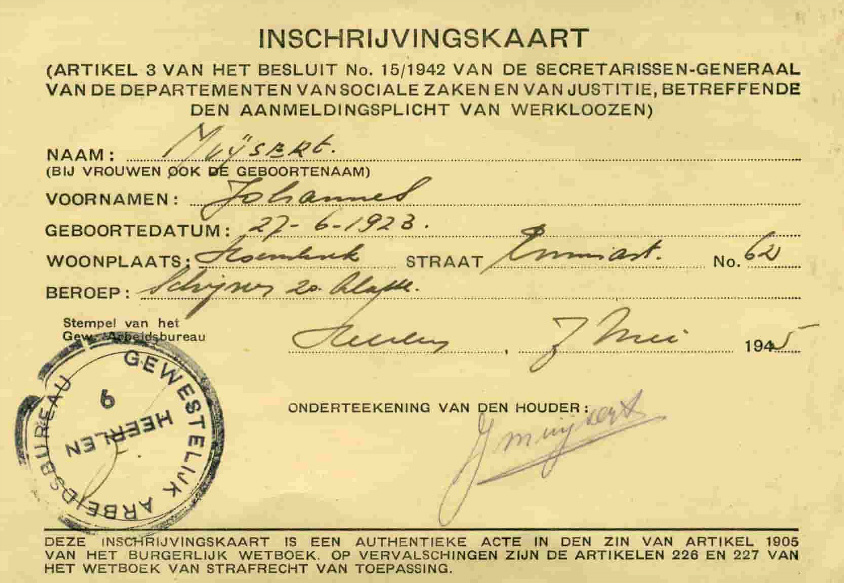 INSCHRIJVINGSKAART
(ARTIKEL 3 VAN HET BESLUIT No. 15/1942 VAN DE SECRETARISSEN-GENERAAL
VAN DE DEPARTEMENTEN VAN SOCIALE ZAKEN EN VAN JUSTITIE, BETREFFENDE
DEN AANMELDINGSPLICHT VAN WERKLOOZEN)
NAAM: Muÿsert.
(BIJ VROUWEN OOK DE GEBOORTENAAM)
VOORNAMEN: Johannes
GEBOORTEDATUM: 27-6-1923.
WOONPLAATS: STRAAT No. 62
BEROEP: 2e klasse.
Stempel van het
Gew. Arbeidsbureau
Heerlen, 7 Mei 1945
GEWESTELIJK ARBEIDSBUREAU
9
HEERLEN
ONDERTEEKENING VAN DEN HOUDER:
J Muijsert
DEZE INSCHRIJVINGSKAART IS EEN AUTHENTIEKE ACTE IN DEN ZIN VAN ARTIKEL 1905
VAN HET BURGERLIJK WETBOEK. OP VERVALSCHINGEN ZIJN DE ARTIKELEN 226 EN 227 VAN
HET WETBOEK VAN STRAFRECHT VAN TOEPASSING.